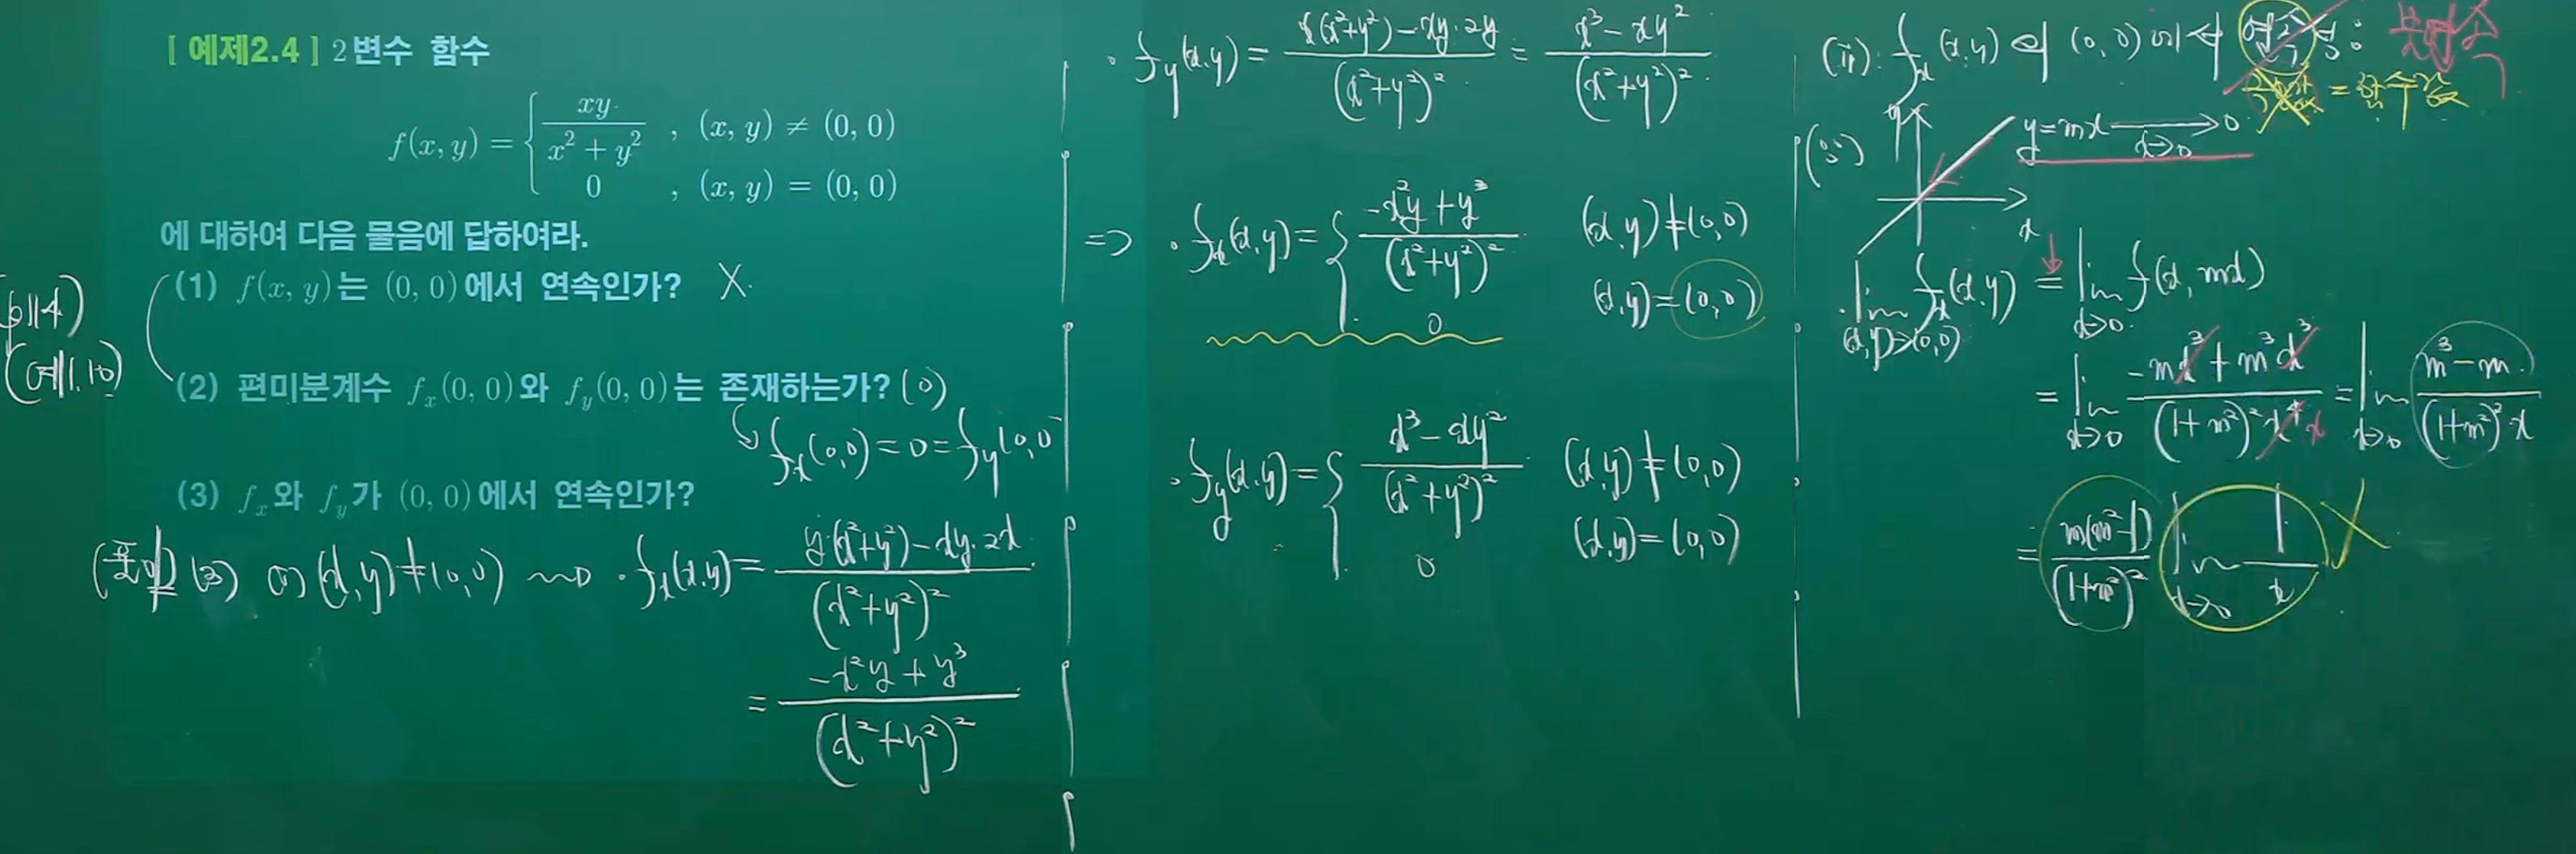 [ 예제2.4 ] 2변수 함수
f(x, y) = { xy / (x² + y²) , (x, y) ≠ (0, 0)
0 , (x, y) = (0, 0)
에 대하여 다음 물음에 답하여라.
(1) f(x, y)는 (0, 0)에서 연속인가? X
(p114)
(예1.10)
(2) 편미분계수 fx(0, 0)와 fy(0, 0)는 존재하는가? (O)
fx(0,0) = 0 = fy(0,0)
(3) fx와 fy가 (0, 0)에서 연속인가?
(풀이) (3) (i) (x,y) ≠ (0,0) ⇝ · fx(x,y) = (y·(x²+y²) − xy·2x) / (x²+y²)²
= (−x²y + y³) / (x²+y²)²
· fy(x,y) = (x(x²+y²) − xy·2y) / (x²+y²)² = (x³ − xy²) / (x²+y²)²
⇒ · fx(x,y) = { (−x²y + y³) / (x²+y²)² (x,y) ≠ (0,0)
0 (x,y) = (0,0)
· fy(x,y) = { (x³ − xy²) / (x²+y²)² (x,y) ≠ (0,0)
0 (x,y) = (0,0)
(ii): fx(x,y)의 (0,0)에서 연속성: 불연속
극한 = 함수값
(∵) y y = mx → 0
x→0
x
· lim (x,y)→(0,0) fx(x,y) = lim x→0 f(x, mx)
= lim x→0 (−mx³ + m³x³) / ((1+m²)²x⁴) x = lim x→0 (m³ − m) / ((1+m²)²x)
= m(m²−1) / (1+m²)² lim x→0 1/x X